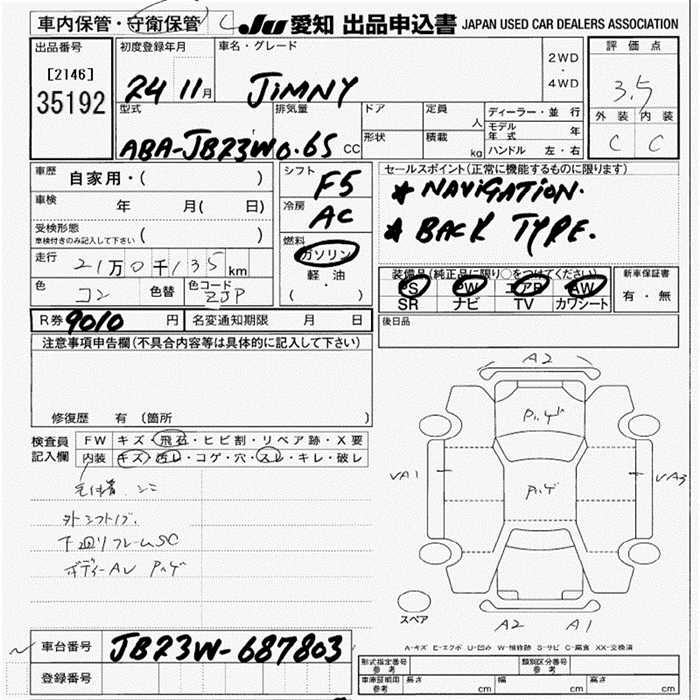 車内保管・守衛保管 C JU 愛知 出品申込書 JAPAN USED CAR DEALERS ASSOCIATION
出品番号 初度登録年月 車名・グレード 2WD ・ 4WD 評価点
[2146] 35192 24 11月 JIMNY 3.5
型式 排気量 ドア 定員 人 ディーラー・並行 外装 内装
形状 積載 kg モデル年式 年
ABA-JB23W 0.65 CC ハンドル 左・右 C C
車歴 自家用・( ) シフト F5 セールスポイント(正常に機能するものに限ります)
車検 年 月( 日) 冷房 AC * NAViGATiON.
受検形態 車検付きのみ記入して下さい ( ) * BACK TYPE.
走行 21万0千135km 燃料 ガソリン 軽油 ( ・ )
装備品(純正品に限り○をつけてください) 新車保証書
色 コン 色替 色コード ZJP PS PW エアB AW 有・無
SR ナビ TV カワシート
R券 9010 円 名変通知期限 月 日 後日品
注意事項申告欄(不具合内容等は具体的に記入して下さい)
修復歴 有 (箇所 )
検査員記入欄 FW キズ・飛石・ヒビ割・リペア跡・X要
内装 キズ・汚レ・コゲ・穴・スレ・キレ・破レ
シミ
外シフトノブ.
下回リフレームSC
ボディーAU Pハゲ
A2
Pハゲ
VA1 Pハゲ VA3
スペア A2 A1
A-キズ E-エクボ U-凹み W-補修跡 S-サビ C-腐食 XX-交換済
車台番号 JB23W-687803
登録番号
形式指定番号 参考 類別区分番号 参考
車庫証明用 参考 長さ cm 幅 cm 高さ cm